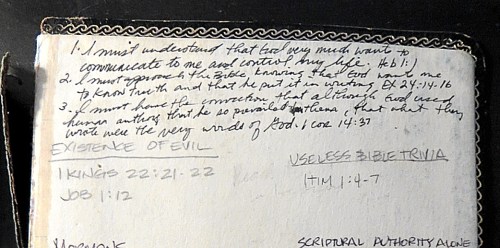 1. I must understand that God very much wants to
communicate to me and control my life. Heb 1:1
2. I must approach the Bible, knowing that God wants me
to know truth and that he put it in writing Ex 24:14-16
3. I must have the conviction that although God used
human authors that he so them, that what they
wrote were the very words of God. 1 Cor 14:37
EXISTENCE OF EVIL
USELESS BIBLE TRIVIA
1 KINGS 22:21-22
1 TIM 1:4-7
JOB 1:12
MORMONS
SCRIPTURAL AUTHORITY ALONE